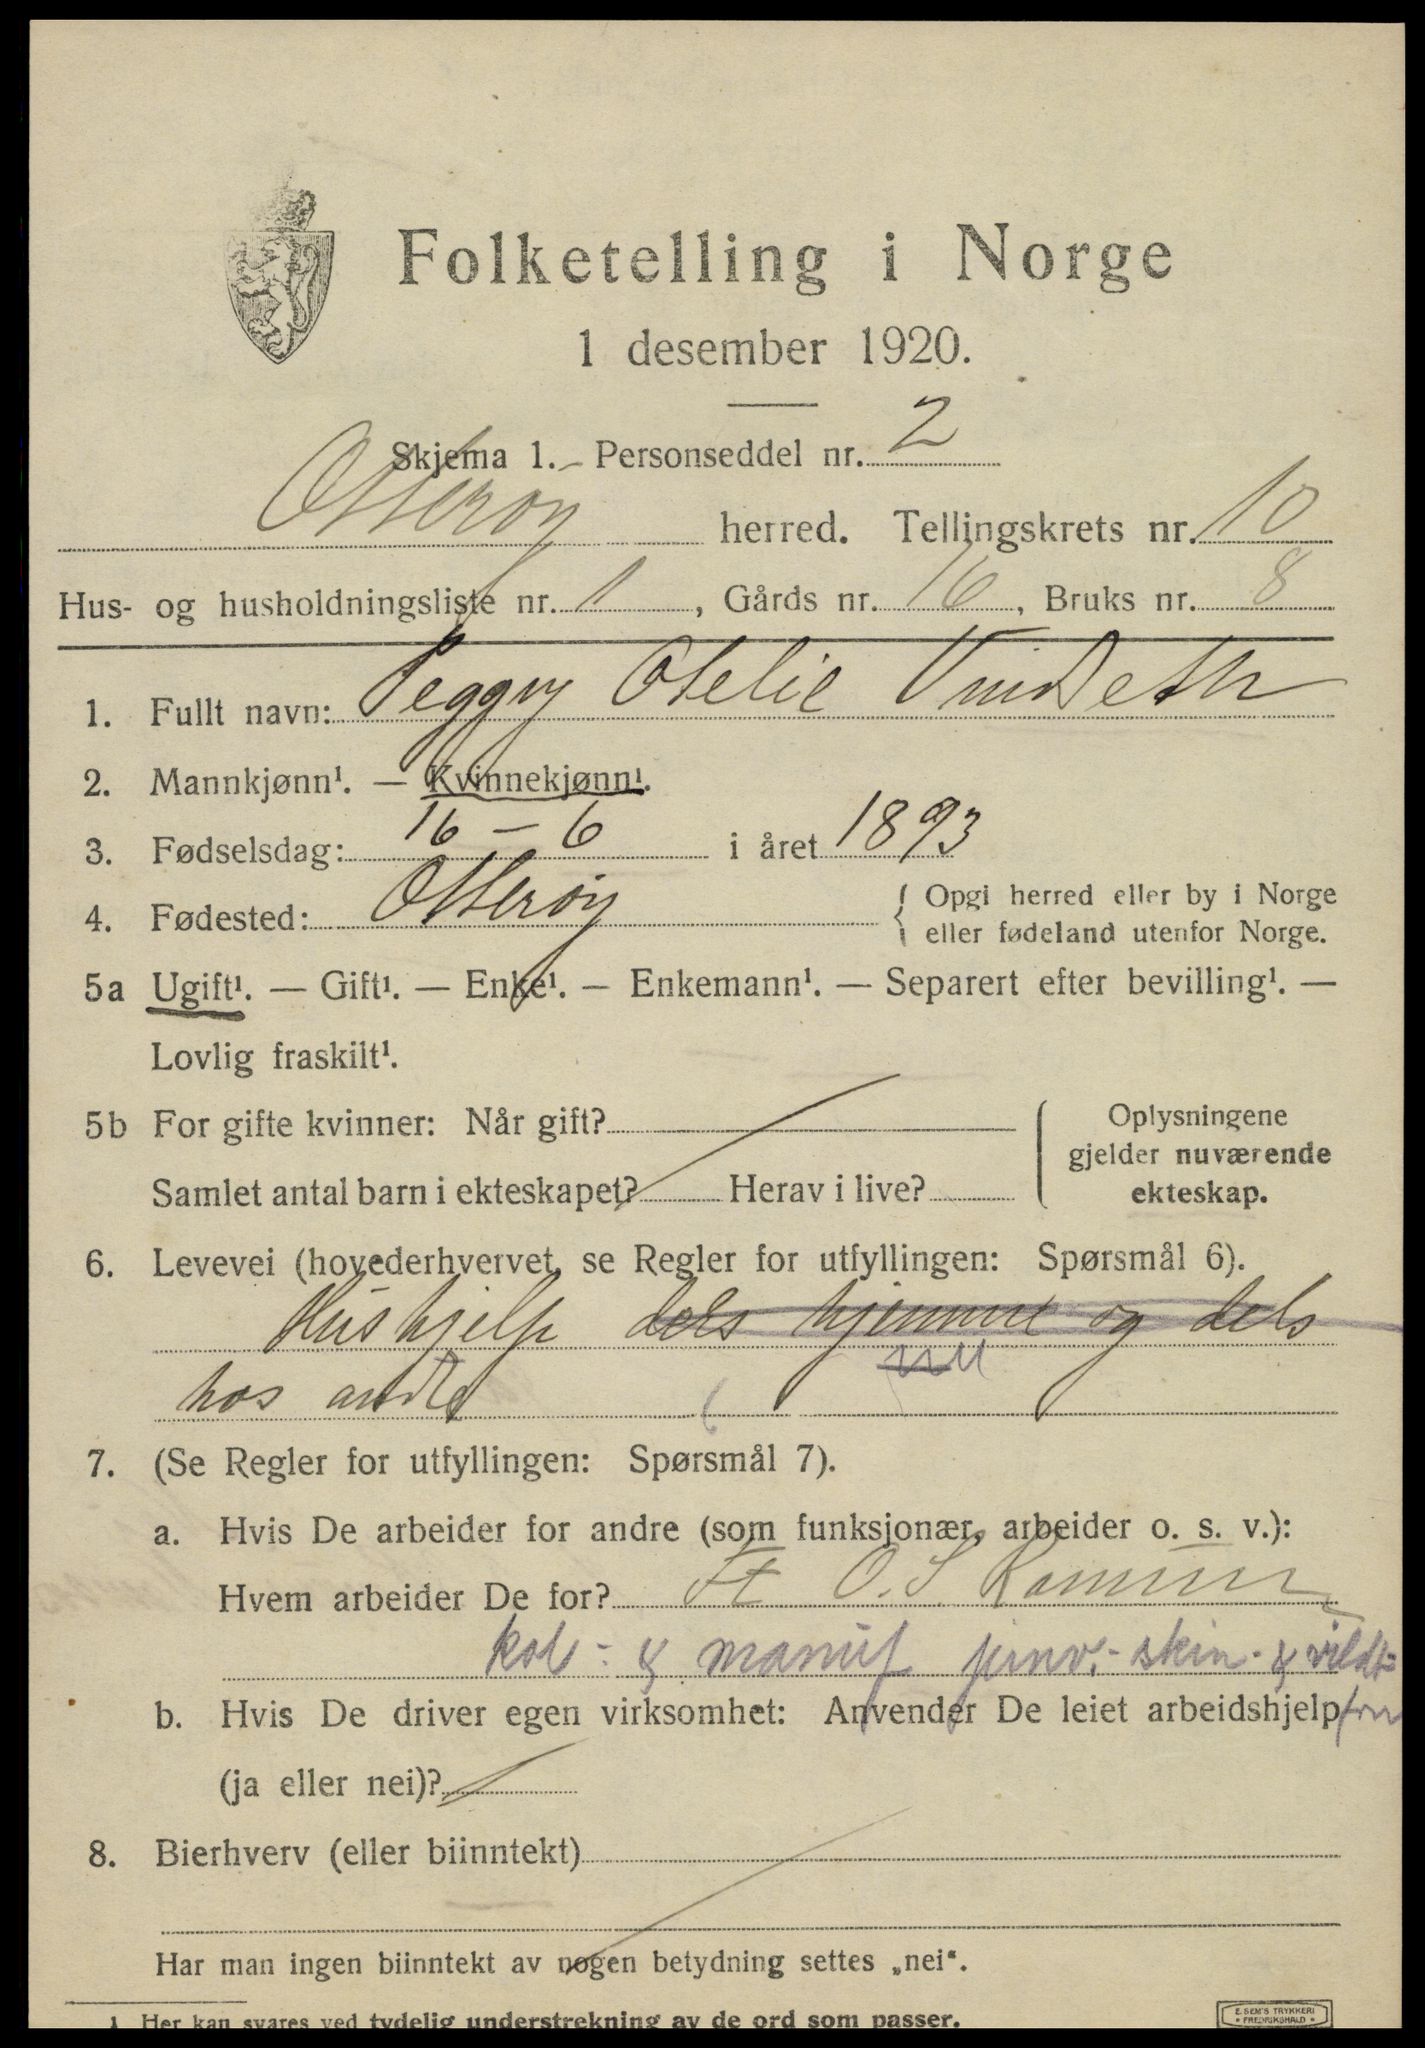 Folketelling i Norge
1 desember 1920.
Skjema 1. — Personseddel nr. 2
Otterøy herred. Tellingskrets nr. 10
Hus- og husholdningsliste nr. 1, Gårds nr. 16, Bruks nr. 8
1. Fullt navn: Peggy Otelie
2. Mannkjønn¹. — Kvinnekjønn¹.
3. Fødselsdag: 16 – 6 i året 1893
4. Fødested: Otterøy { Opgi herred eller by i Norge
eller fødeland utenfor Norge.
5a Ugift¹. — Gift¹. — Enke¹. — Enkemann¹. — Separert efter bevilling¹. —
Lovlig fraskilt¹.
5b For gifte kvinner: Når gift?
Samlet antal barn i ekteskapet? Herav i live?
Oplysningene
gjelder nuværende
ekteskap.
6. Levevei (hovederhvervet, se Regler for utfyllingen: Spørsmål 6).
Hushjelp dels hjemme og dels
hos andre
7. (Se Regler for utfyllingen: Spørsmål 7).
a. Hvis De arbeider for andre (som funksjonær, arbeider o. s. v.):
Hvem arbeider De for? O. S.
kol- & manuf skin- &
b. Hvis De driver egen virksomhet: Anvender De leiet arbeidshjelp
(ja eller nei)?
8. Bierhverv (eller biinntekt)
Har man ingen biinntekt av nogen betydning settes „nei“.
1 Her kan svares ved tydelig understrekning av de ord som passer.
E. SEM'S TRYKKERI
• FREDRIKSHALD •